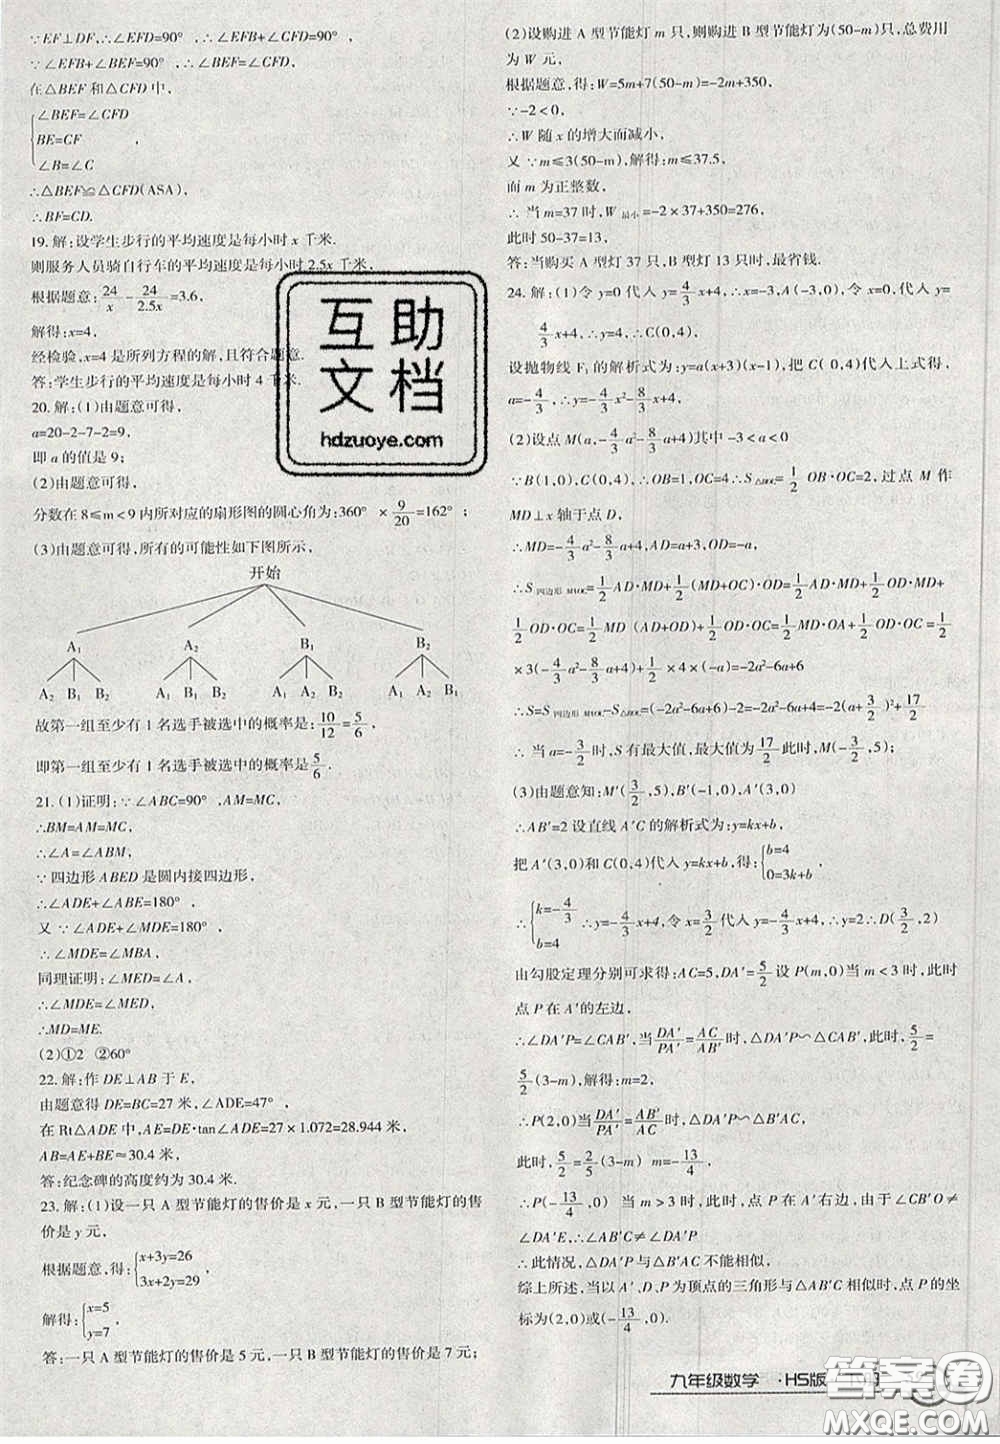 ∵EF⊥DF,∴∠EFD=90° ,∴∠EFB+∠CFD=90° ,
∵∠EFB+∠BEF=90°,∴∠BEF=∠CFD,
在△BEF 和△CFD 中,
{∠BEF=∠CFD
BE=CF ,
∠B=∠C
∴△BEF≌△CFD(ASA),
∴BF=CD.
19. 解:设学生步行的平均速度是每小时 x 千米.
则服务人员骑自行车的平均速度是每小时 2.5x 千米,
根据题意:24/x-24/2.5x=3.6,
解得:x=4,
经检验, x=4 是所列方程的解,且符合题意.
答:学生步行的平均速度是每小时 4 千米.
20. 解:(1)由题意可得,
a=20-2-7-2=9,
即 a 的值是 9;
(2)由题意可得,
分数在 8≤m<9 内所对应的扇形图的圆心角为:360° ×9/20=162° ;
(3)由题意可得,所有的可能性如下图所示,
开始
A₁ A₂ B₁ B₂
A₂ B₁ B₂ A₁ B₁ B₂ A₁ A₂ B₂ A₁ A₂ B₁
故第一组至少有 1 名选手被选中的概率是:10/12=5/6 ,
即第一组至少有 1 名选手被选中的概率是5/6.
21. (1)证明:∵∠ABC=90° ,AM=MC,
∴BM=AM=MC,
∴∠A=∠ABM,
∵四边形 ABED 是圆内接四边形,
∴∠ADE+∠ABE=180°,
又 ∵∠ADE+∠MDE=180°,
∴∠MDE=∠MBA,
同理证明:∠MED=∠A,
∴∠MDE=∠MED,
∴MD=ME.
(2)①2 ②60°
22. 解:作 DE⊥AB 于 E,
由题意得 DE=BC=27 米,∠ADE=47° ,
在 Rt△ADE 中,AE=DE·tan∠ADE=27×1.072=28.944 米,
AB=AE+BE≈30.4 米,
答:纪念碑的高度约为 30.4 米.
23. 解:(1)设一只 A 型节能灯的售价是 x 元,一只 B 型节能灯的售
价是 y 元,
根据题意,得:{x+3y=26
3x+2y=29 ,
解得:{x=5
y=7 ,
答:一只 A 型节能灯的售价是 5 元,一只 B 型节能灯的售价是 7 元;
(2)设购进 A 型节能灯 m 只,则购进 B 型节能灯为(50-m)只,总费用
为 W 元,
根据题意,得:W=5m+7(50-m)=-2m+350,
∵-2<0,
∴W 随 x 的增大而减小,
又 ∵m≤3(50-m),解得:m≤37.5,
而 m 为正整数,
∴ 当 m=37 时,W 最小=-2×37+350=276,
此时 50-37=13,
答:当购买 A 型灯 37 只,B 型灯 13 只时,最省钱.
24. 解:(1)令 y=0 代入 y=4/3x+4,∴x=-3,A(-3,0),令 x=0,代入 y=
4/3x+4,∴y=4,∴C(0,4)
设抛物线 F₁ 的解析式为:y=a(x+3)(x-1),把 C(0,4)代入上式得,
a=-4/3,∴y=-4/3x²-8/3x+4,
(2)设点 M(a,-4/3a²-8/3a+4)其中 -3<a<0
∵B(1,0),C(0,4),∴OB=1,OC=4∴S△BOC=1/2OB·OC=2,过点 M 作
MD⊥x 轴于点 D,
∴MD=-4/3a²-8/3a+4,AD=a+3,OD=-a,
∴S四边形 MAOC=1/2AD·MD+1/2(MD+OC)·OD=1/2AD·MD+1/2OD·MD+
1/2OD·OC=1/2MD(AD+OD)+1/2OD·OC=1/2MD·OA+1/2OD·OC=1/2
×3(-4/3a²-8/3a+4)+1/2×4×(-a)=-2a²-6a+6
∴S=S四边形 MAOC-S△BOC=(-2a²-6a+6)-2=-2a²-6a+4=-2(a+3/2)²+17/2
∴ 当 a=-3/2时,S 有最大值,最大值为17/2此时,M(-3/2,5);
(3)由题意知:M′(3/2,5),B′(-1,0),A′(3,0)
∴AB′=2 设直线 A′C 的解析式为:y=kx+b,
把 A′(3,0)和 C(0,4)代入 y=kx+b,得:{b=4
0=3k+b
∴{k=-4/3
b=4 ∴y=-4/3x+4,令 x=3/2代入 y=-4/3x+4,∴y=2∴D(3/2,2)
由勾股定理分别可求得:AC=5,DA′=5/2设 P(m,0)当 m<3 时,此时
点 P 在 A′的左边,
∴∠DA′P=∠CAB′,当DA′/PA′=AC/AB′时,△DA′P∽△CAB′,此时,5/2=
5/2(3-m),解得:m=2,
∴P(2,0)当DA′/PA′=AB′/AC时,△DA′P∽△B′AC,
此时,5/2=2/5(3-m) m=-13/4,
∴P(-13/4,0) 当 m>3 时,此时,点 P 在 A′右边,由于∠CB′O≠
∠DA′E,∴∠AB′C≠∠DA′P
∴此情况,△DA′P 与△B′AC 不能相似,
综上所述,当以 A′、D、P 为顶点的三角形与△AB′C 相似时,点 P 的坐
标为(2,0)或(-13/4,0).
互助
文档
hdzuoye.com
九年级数学 ·HS版
答案圈
MXQE.COM